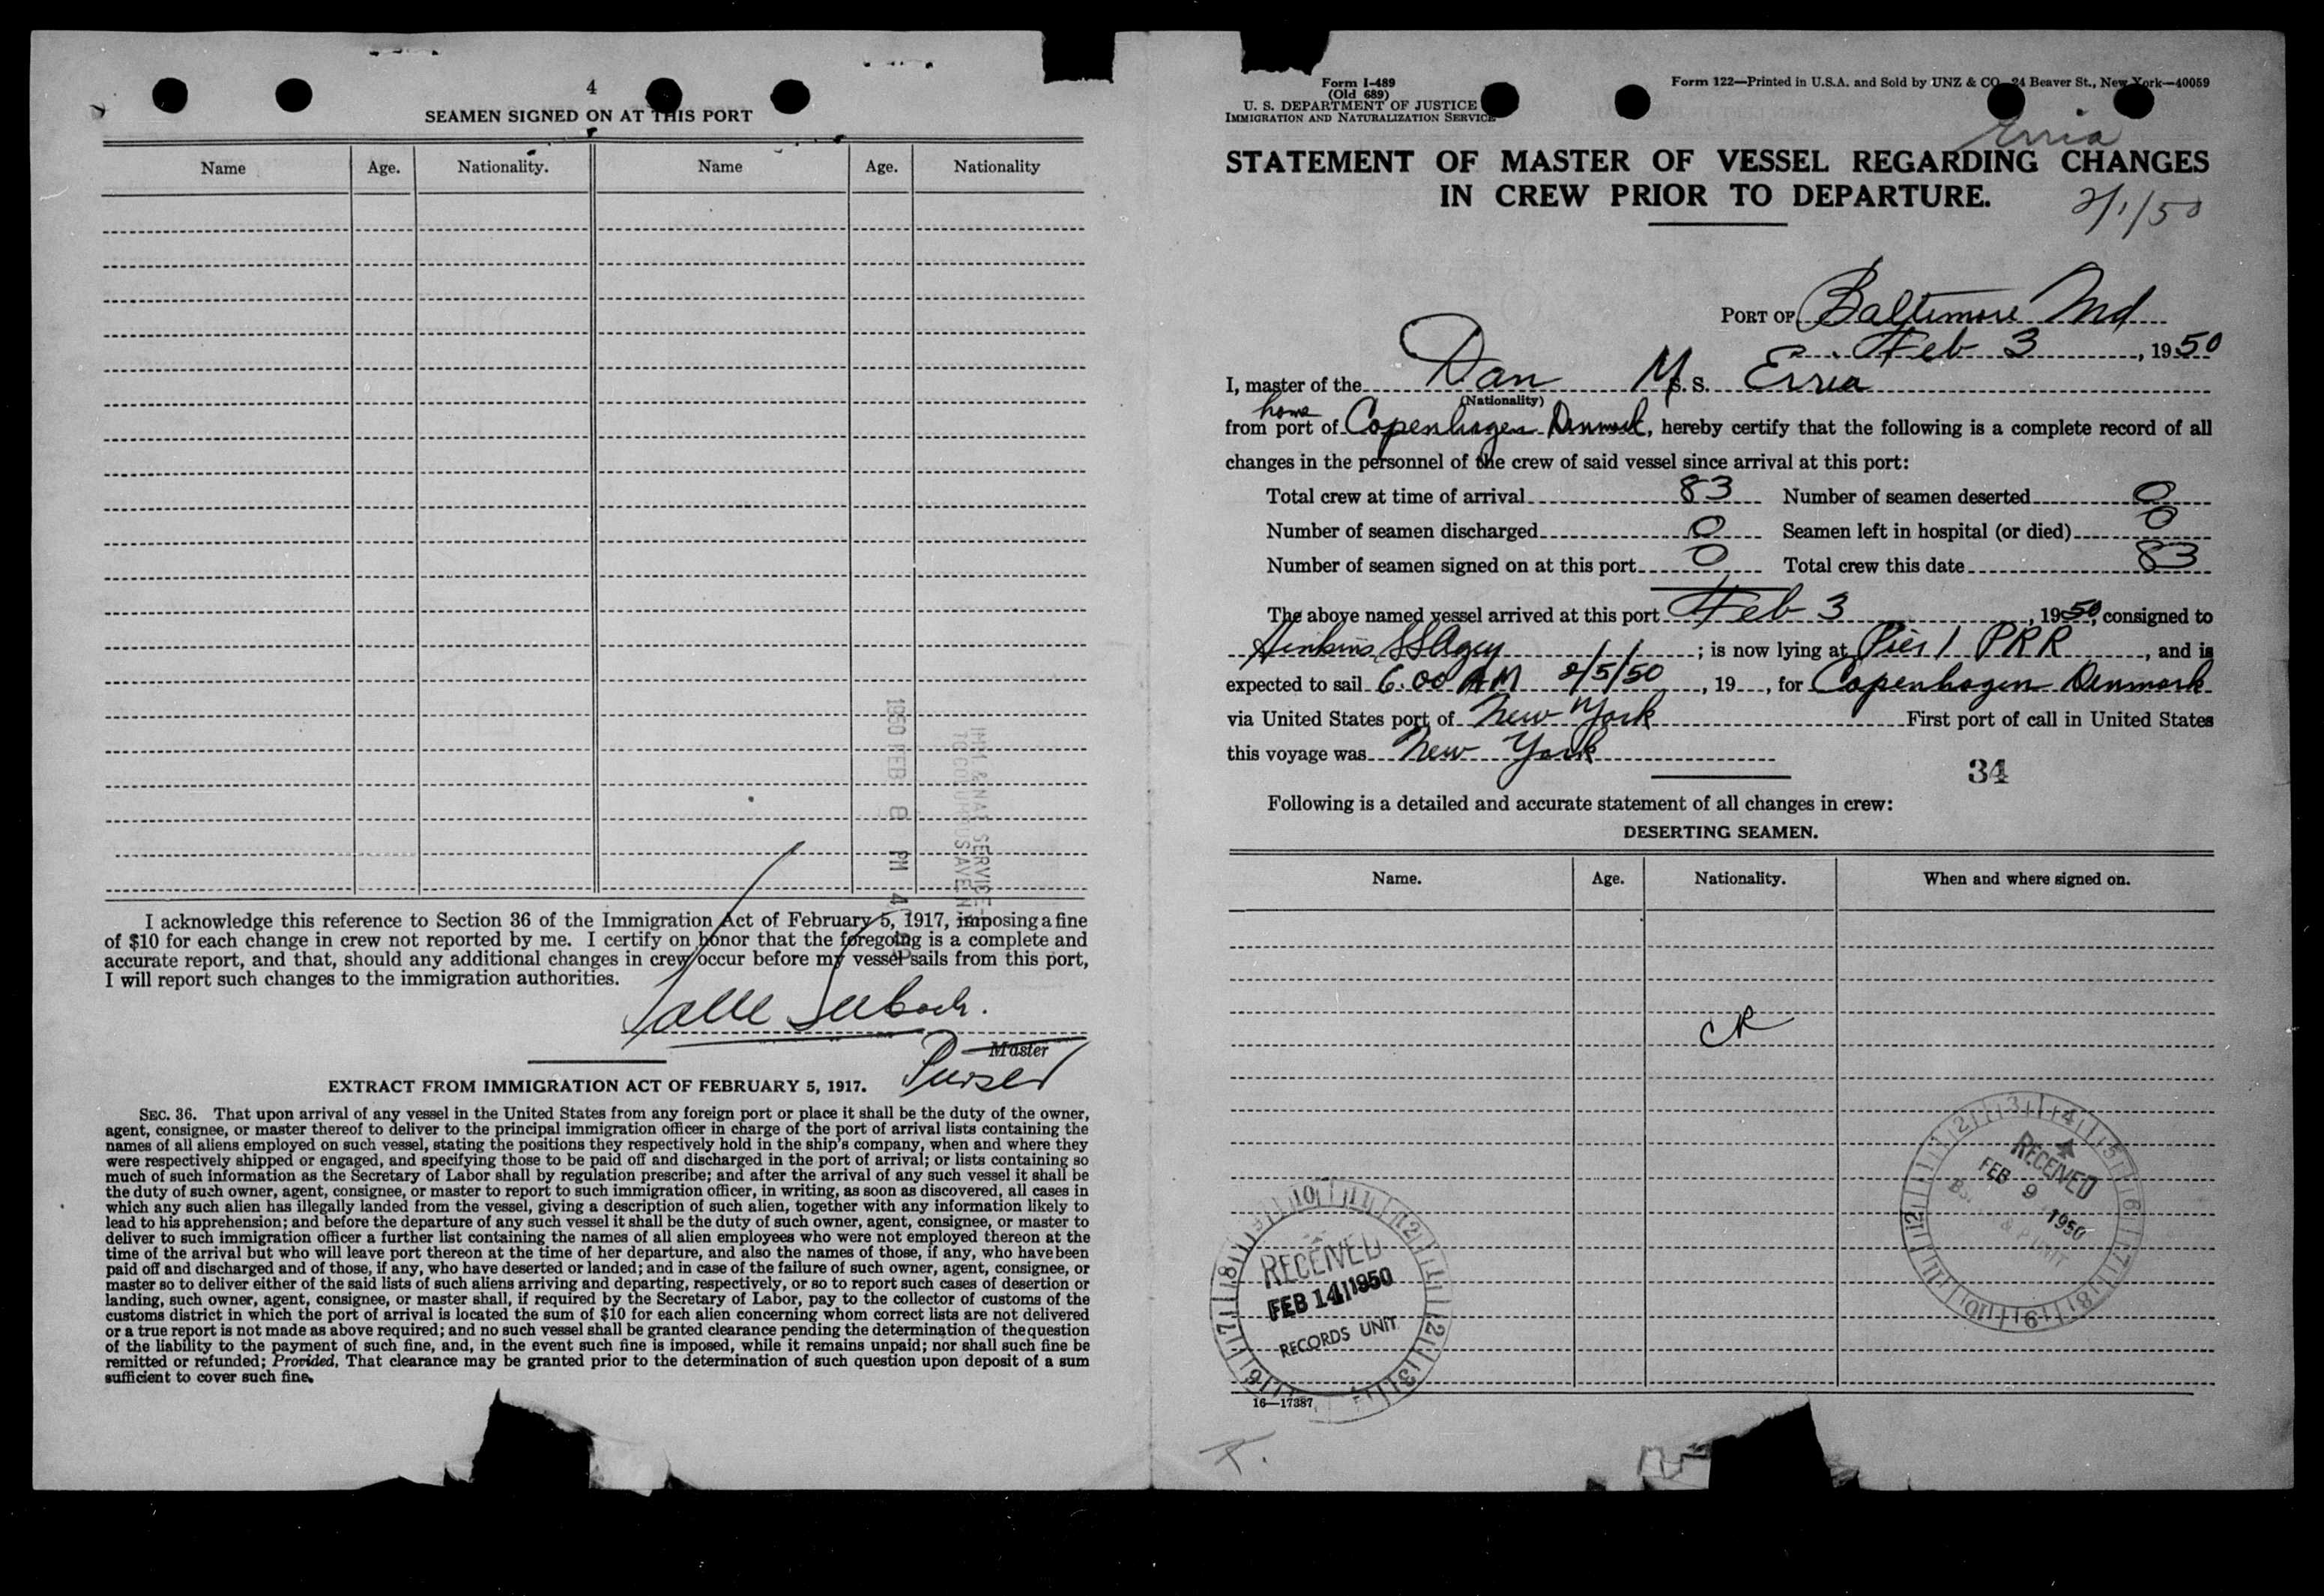 4
SEAMEN SIGNED ON AT THIS PORT
Name Age. Nationality. Name Age. Nationality
1950 FEB 8 PM 4
IMM. & NAT. SERVICE
TO COLUMBUS AVE. N
I acknowledge this reference to Section 36 of the Immigration Act of February 5, 1917, imposing a fine
of $10 for each change in crew not reported by me. I certify on honor that the foregoing is a complete and
accurate report, and that, should any additional changes in crew occur before my vessel sails from this port,
I will report such changes to the immigration authorities.
Master
Purser
EXTRACT FROM IMMIGRATION ACT OF FEBRUARY 5, 1917.
SEC. 36. That upon arrival of any vessel in the United States from any foreign port or place it shall be the duty of the owner,
agent, consignee, or master thereof to deliver to the principal immigration officer in charge of the port of arrival lists containing the
names of all aliens employed on such vessel, stating the positions they respectively hold in the ship's company, when and where they
were respectively shipped or engaged, and specifying those to be paid off and discharged in the port of arrival; or lists containing so
much of such information as the Secretary of Labor shall by regulation prescribe; and after the arrival of any such vessel it shall be
the duty of such owner, agent, consignee, or master to report to such immigration officer, in writing, as soon as discovered, all cases in
which any such alien has illegally landed from the vessel, giving a description of such alien, together with any information likely to
lead to his apprehension; and before the departure of any such vessel it shall be the duty of such owner, agent, consignee, or master to
deliver to such immigration officer a further list containing the names of all alien employees who were not employed thereon at the
time of the arrival but who will leave port thereon at the time of her departure, and also the names of those, if any, who have been
paid off and discharged and of those, if any, who have deserted or landed; and in case of the failure of such owner, agent, consignee, or
master so to deliver either of the said lists of such aliens arriving and departing, respectively, or so to report such cases of desertion or
landing, such owner, agent, consignee, or master shall, if required by the Secretary of Labor, pay to the collector of customs of the
customs district in which the port of arrival is located the sum of $10 for each alien concerning whom correct lists are not delivered
or a true report is not made as above required; and no such vessel shall be granted clearance pending the determination of the question
of the liability to the payment of such fine, and, in the event such fine is imposed, while it remains unpaid; nor shall such fine be
remitted or refunded; Provided, That clearance may be granted prior to the determination of such question upon deposit of a sum
sufficient to cover such fine.
Form I-489
(Old 689)
U. S. DEPARTMENT OF JUSTICE
IMMIGRATION AND NATURALIZATION SERVICE
Form 122—Printed in U.S.A. and Sold by UNZ & CO. 24 Beaver St., New York—40059
Erria
STATEMENT OF MASTER OF VESSEL REGARDING CHANGES
IN CREW PRIOR TO DEPARTURE.
2/1/50
PORT OF Baltimore Md
Feb 3, 1950
I, master of the Dan M. S. Erria
(Nationality)
home
from port of Copenhagen Denmark, hereby certify that the following is a complete record of all
changes in the personnel of the crew of said vessel since arrival at this port:
Total crew at time of arrival 83 Number of seamen deserted 0
Number of seamen discharged 0 Seamen left in hospital (or died) 0
Number of seamen signed on at this port 0 Total crew this date 83
The above named vessel arrived at this port Feb 3, 1950, consigned to
SS Agcy; is now lying at Pier 1 PRR, and is
expected to sail 6:00 AM 2/5/50, 19, for Copenhagen Denmark
via United States port of New York First port of call in United States
this voyage was New York
34
Following is a detailed and accurate statement of all changes in crew:
DESERTING SEAMEN.
Name. Age. Nationality. When and where signed on.
CR
RECEIVED
FEB 9 1950
RECEIVED
FEB 14 1950
RECORDS UNIT
16—17387